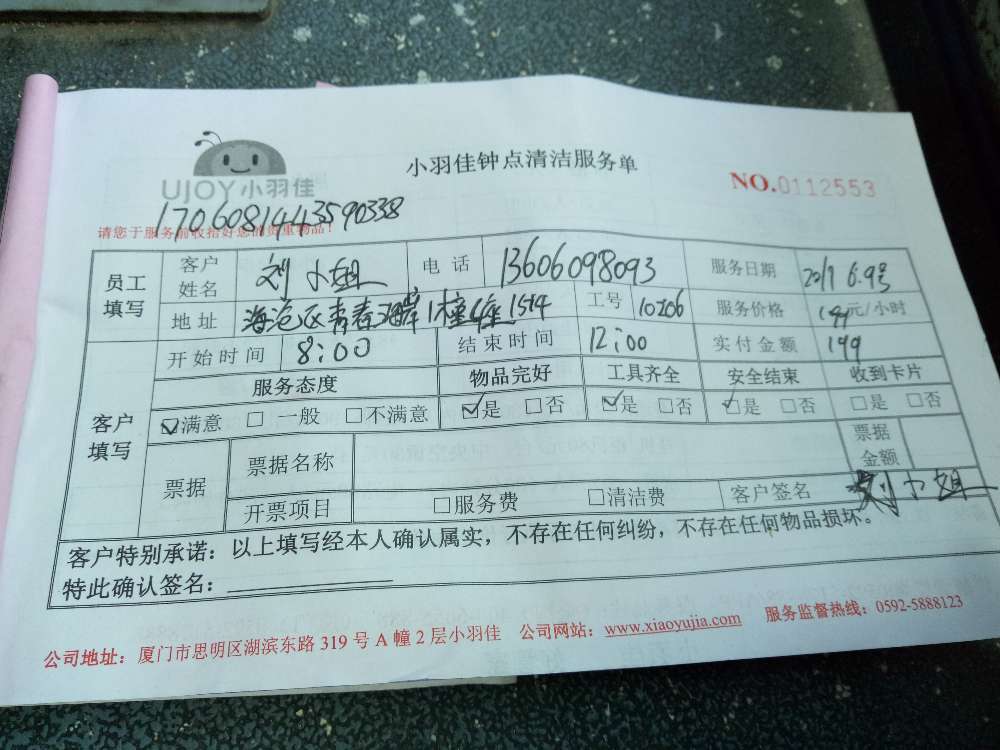 小羽佳钟点清洁服务单
NO.0112553
UJOY小羽佳
1706081443590338
请您于服务前收拾好您的贵重物品！
员工填写 客户姓名 刘小姐 电话 13606098093 服务日期 2017 6.9号
地址 海沧区青春海岸1幢 1514 工号 10206 服务价格 149元/小时
客户填写 开始时间 8:00 结束时间 12:00 实付金额 149
服务态度 物品完好 工具齐全 安全结束 收到卡片
☑满意 □一般 □不满意 ☑是 □否 ☑是 □否 ☑是 □否 □是 □否
票据 票据名称 票据金额
开票项目 □服务费 □清洁费 客户签名 刘小姐
客户特别承诺：以上填写经本人确认属实，不存在任何纠纷，不存在任何物品损坏。
特此确认签名：
公司地址：厦门市思明区湖滨东路 319 号 A 幢 2 层小羽佳 公司网站：www.xiaoyujia.com 服务监督热线：0592-5888123